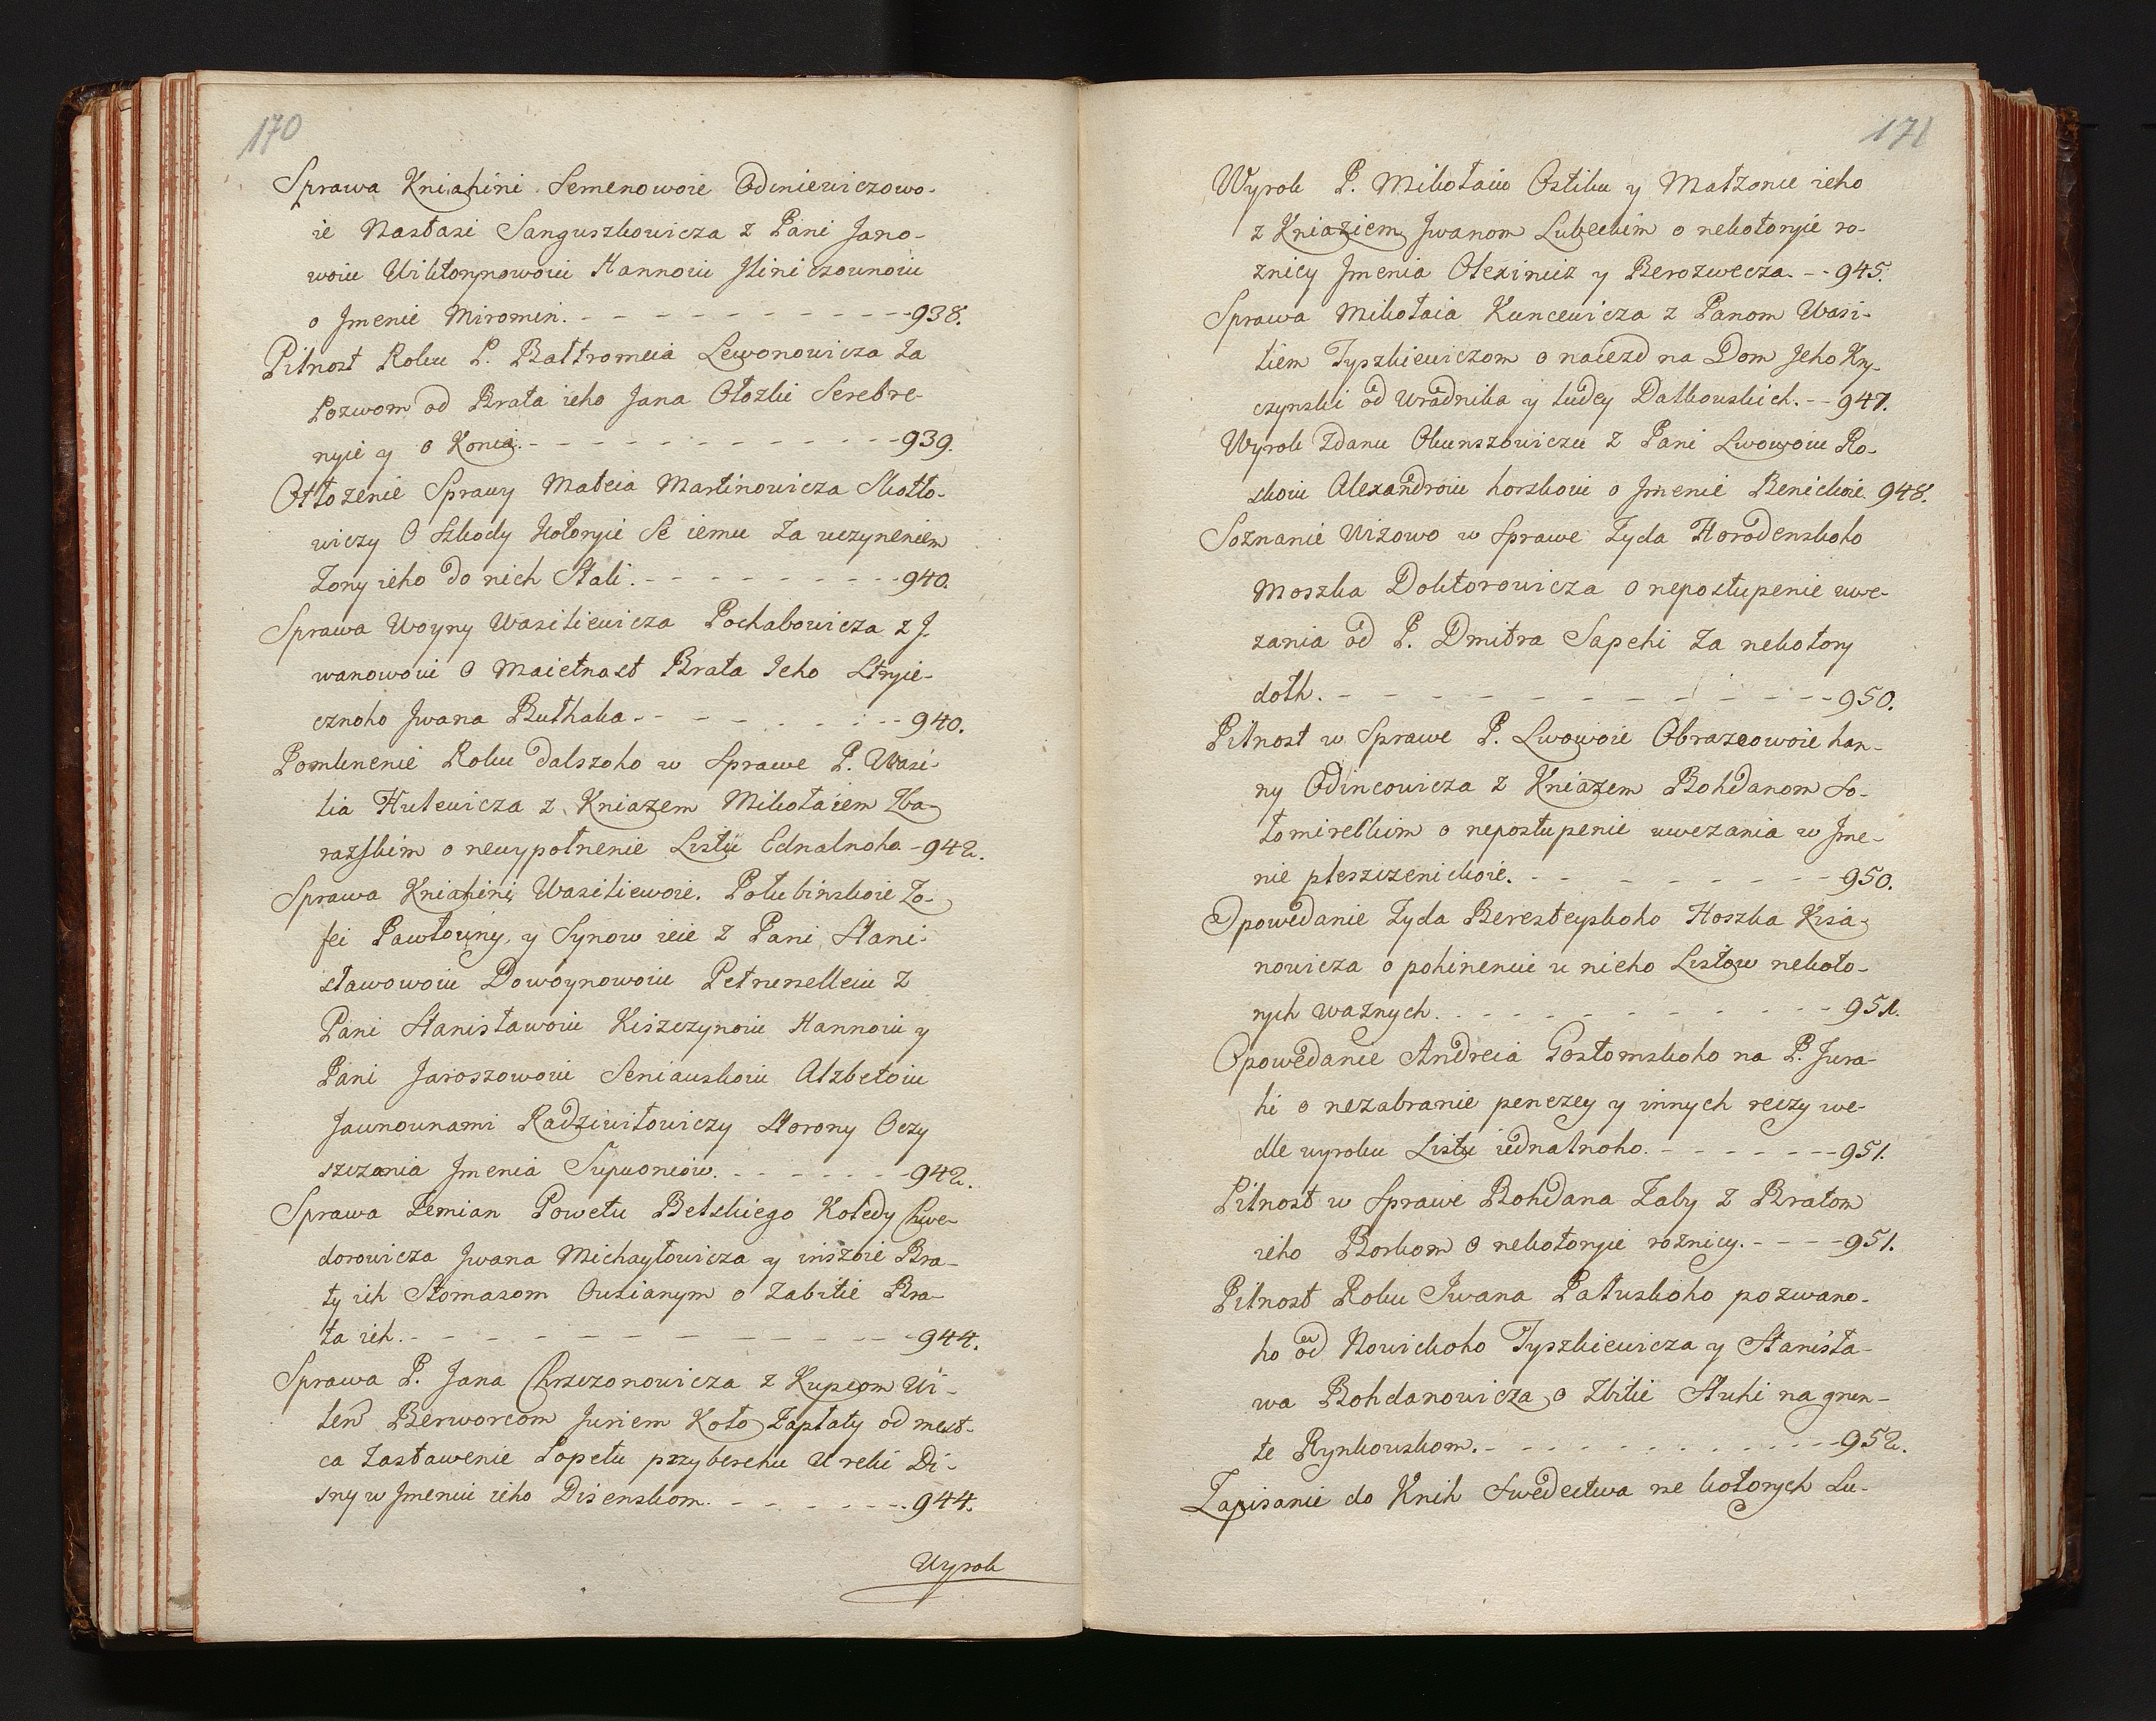 170
Sprawa Kniahini Semenowoie Odiniewiczowo-
ie Nastasi Sanguszkowicza z Pani Jano-
woiu Wiktorynowoiu Hannoiu Iliniczounoiu
o Jmenie Miromin. - - - 938.
Pilnost Roku P. Bałtromeia Lewonowicza za
Pozwom od Brata ieho Jana Ołozki Serebre-
nyie y o Konia. - - - 939.
Otłozenie Sprawy Mateia Martinowicza Skołto-
wiczy O Szkody kotoryie Se iemu za uczyneniem
Zony ieho do nich Stali. - - - 940.
Sprawa Woyny Wasiliewicza Pochabowicza z J-
wanowoiu O Maietnast Brata Jeho Stryie-
cznoho Jwana Buthaka - - - 940.
Pomknenie Roku dalszoho w Sprawe P. Wasi-
lia Hulewicza z Kniazem Mikołaiem Zba-
razskim o newypołnenie Listu Ednalnoho - 942.
Sprawa Kniahini Wasiliewoie. Połubinskoie Zo-
fei Pawłowny, y Synow ieie z Pani Stani-
sławowoiu Dowoynowoiu Petrunelleiu z
Pani Stanisławoiu Kiszczynoiu Hannoiu y
Pani Jaroszowoiu Seniauskoiu Alzbetoiu
Jaunounami Radziwiłowiczy Storony Oczy
szczania Jmenia Supuoniow. - - - 942.
Sprawa Zemian Powetu Belskiego Koledy Chwe-
dorowicza Jwana Michayłowicza y inszoie Bra-
ty ich Stomasom Ousianym o Zabitie Bra-
ta ich. - - - 944.
Sprawa P. Jana Chrszczonowicza z Kupcom Wi-
len Berworcom Juriem Koło Zapłaty od mest-
ca Zastawenie Popełu przy berehu U reki Di-
sny w Jmeniu ieho Disenskom. - - - 944.
Wyrok
171
Wyrok P. Mikołaiu Ostiku y Małzonce ieho
z Kniaziem Jwanom Lubeckim o nekotoryie ro-
znicy Jmenia Olexinicz y Berozwecza. - - 945.
Sprawa Mikołaia Kuncewicza z Panom Wasi-
liem Tyszkiewiczom o naiezd na Dom Jeho Kry-
czynski od Uradnika y ludey Datkouskich. - - 947.
Wyrok Zdanu Okunszowiczu z Pani Lwowoiu Ro-
skoiu Alexandroiu horskoiu o Jmenie Benickoie. 948.
Soznanie Wizowo w Sprawe Zyda Horodenskoho
Moszka Doktorowicza O nepostupenie uwe-
zania od P. Dmitra Sapehi za nekotory
dołh. - - - 950.
Pilnost w Sprawe P. Lwowoie Obrazcowoie han-
ny Odincowicza z Kniazem Bohdanom So-
łomireckim o nepostupenie uwezania w Jme-
nie pleszczenickoie. - - - 950.
Opowedanie Zyda Beresteyskoho Hoszka Kisa-
nowicza o pohineniu u nieho Listow nekoto-
rych waznych. - - - 951.
Opowedanie Andreia Gostomskoho na P. Jura-
hi o nezabranie penezey y innych reczy we-
dle wyroku Listu iednalnoho. - - - 951.
Pilnost w Sprawe Bohdana Zaby z Bratom
ieho Borkom O nekotoryie roznicy. - - - 951.
Pilnost Roku Jwana Patuskoho pozwano-
ho od Nowickoho Tyszkiewicza y Stanisła-
wa Bohdanowicza o Zbitie Sluhi na grun-
te Rynkouskom. - - - 952.
Zapisanie do Knih Swedectwa ne kotorych Lu-